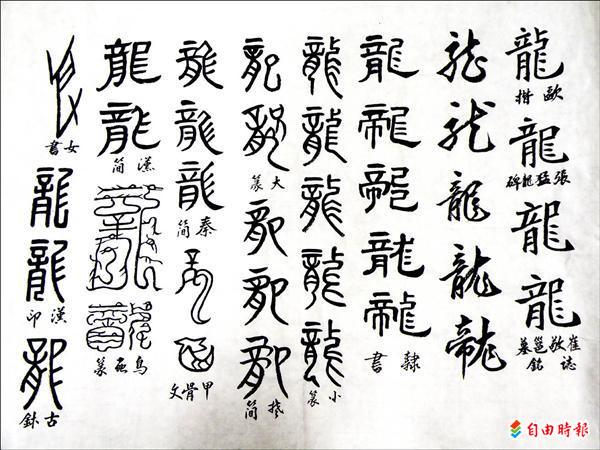 龍
歐楷
龍
張猛龍碑
龍
龍
崔敬邕墓誌銘
龍
龍
龍
龍
龍
龍
龍
龍
龍
龍
隸書
龍
龍
龍
龍
龍
小篆
龍
龍
大篆
龍
龍
龍
楚簡
龍
龍
龍
秦簡
龍
龍
甲骨文
龍
龍
漢簡
龍
龍
鳥虫篆
女書
龍
龍
漢印
龍
古鉥
自由時報